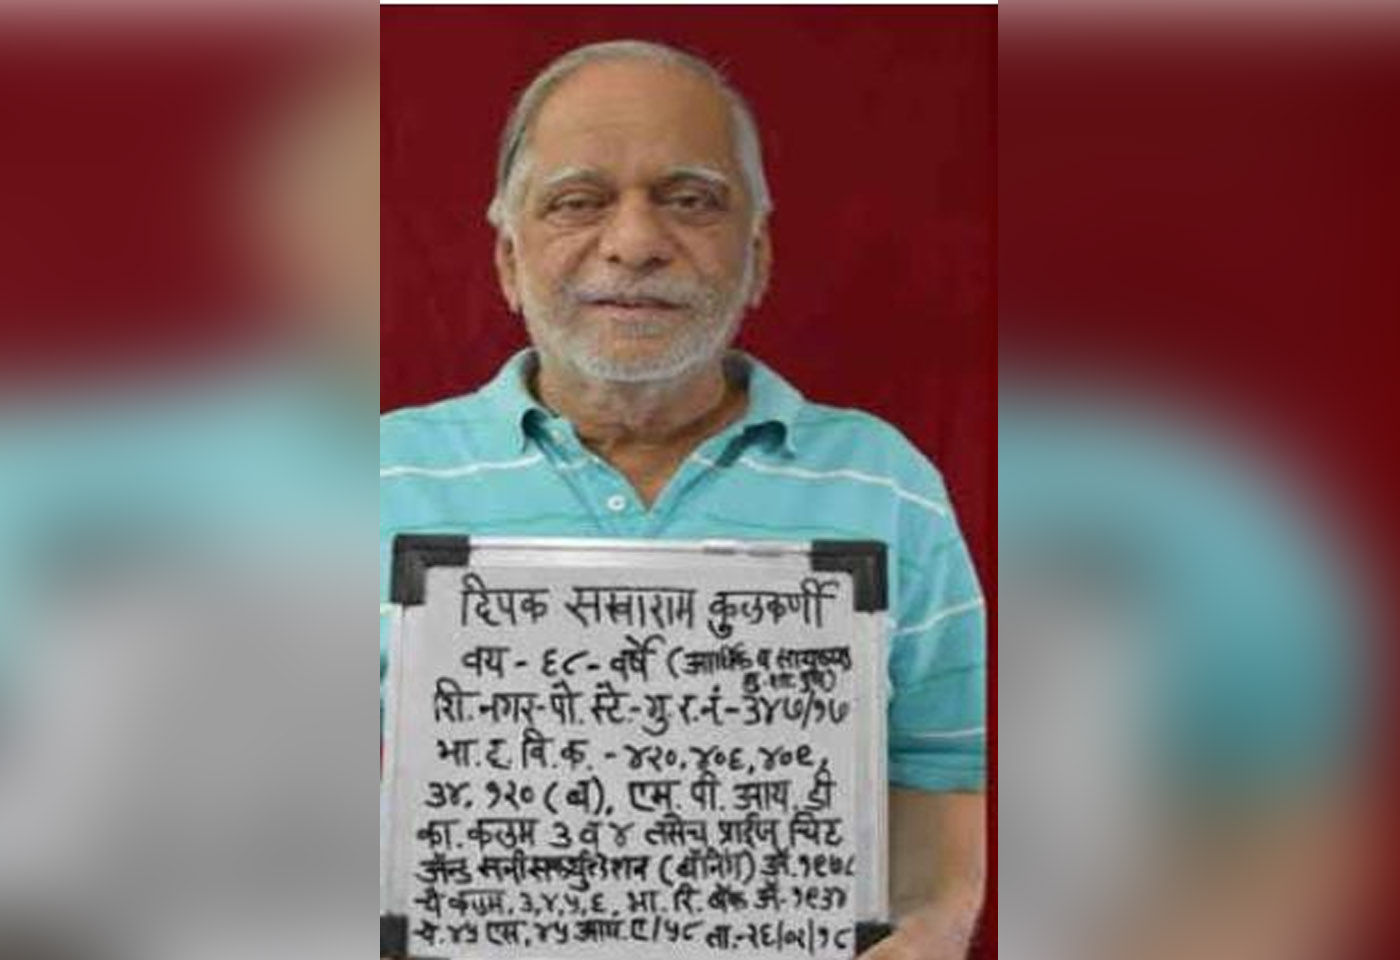 दिपक सखाराम कुलकर्णी
वय - ६८ - वर्षे (आर्थिक व सायबर
गु. शा. पुणे)
शि. नगर - पो. स्टे. - गु. र. नं - ३४७/१७
भा. द. वि. क. - ४२०, ४०६, ४०९,
३४, १२० (ब), एम. पी. आय. डी
का. कलम ३ व ४ तसेच प्राईज चिट
ॲन्ड मनी सर्क्युलेशन (बॅनिंग) ॲ. १९७८
चे कलम. ३, ४, ५, ६, भा. रि. बँक ॲ. १९३४
चे. ४५ एस, ४५ आय. ए/५८ ता. - २६/०२/१८